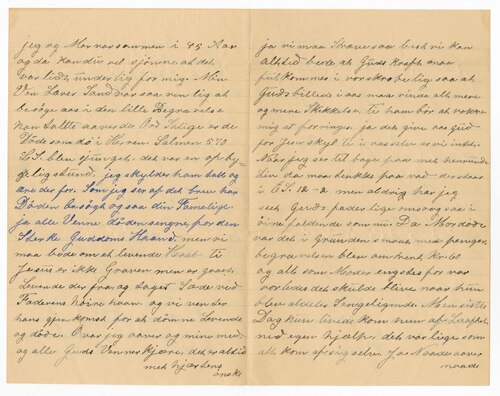 jeg og Mor var sammen i 45 Aar
og da kan du vel sjönne at det
var lidt underlig for mig. Min
Ven Lærer Sandvar saa venlig at
besöge aas i den lille Begravelse
han talte aaver de Ord Salige er de
Döde som dö i Herren Salmen 570
L.S. blev sjunget, det var en opby-
geligstund, jeg skylder ham tak og
ære der for. Som jeg ser af det brev har
Döden besögt og saa din Familige
ja alle Venne
Sterke Guddoms Haand, men vi
maa bede om et levende Haab til
Jesus er ikke Graven men er gaaet
levende der fra, og taget Sæde ved
Faderens höire haan og vi venter
hans gjen komst for at dömme Levende
og döde. O var jeg aover og mine med
og alle Guds Venner kjære, det er altid
met hjærtens
önske
ja vi maa Stræve saa best vi kan
altid bede at Guds kraft maa
fulkommes i vor skrøbelig saa at
Guds billede i aas maa vinde alt mere
og mere Skikkelse, ti ham bör at vokse
mig at foringes ja det give aas Gud
for Jesu skyl ti i aas selve er vi intet.
Naar jeg ser til bage paa met henrunde
Liv da maa
i 65. 12-2 men aldrig har jeg
set Guds faderlige omsorg saa i
öine faldende som nu. Da Mor döde
var det i Grunden smaat med penger,
begravelsen blev omtrent kr 80
og alt som Moder engstes for var
vorledes det skulde blive naar hun
blev aldeles Sengeligende. Men sidste
Dag hun levde kom hun af
ved egen hjælp, det var lige som
alt kom af sig selv. Ja Naade aaver
naade